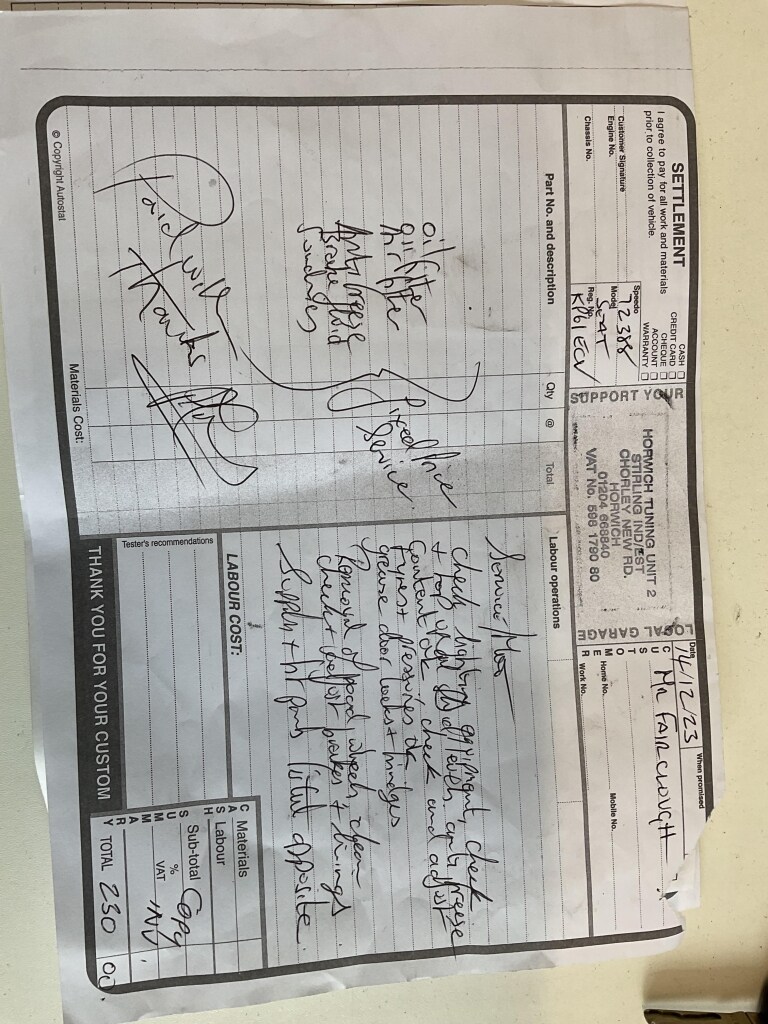 SETTLEMENT
I agree to pay for all work and materials
prior to collection of vehicle.
CASH
CREDIT CARD
CHEQUE
ACCOUNT
WARRANTY
Customer Signature
Engine No.
Chassis No.
Speedo 72388
Model SEAT
Reg. No. KP61ECV
SUPPORT YOUR
LOCAL GARAGE
HORWICH TUNING UNIT 2
STIRLING IND/EST
CHORLEY NEW RD.
HORWICH
01204 668840
VAT No. 596 1790 80
Date 14/12/23
When promised
CUSTOMER
MR FAIRCLOUGH
Home No.
Mobile No.
Work No.
Part No. and description
Qty
@
Total
oil filter
oil
Air filter
Antifreeze
Brake fluid
Sundries
Fixed Price
Service.
Paid with
Thanks
Materials Cost:
© Copyright Autostat
Labour operations
Service/Mot
check lighting equipment, check
+ top up all levels, antifreeze
content ok, check and adjust
tyres + pressures ok.
grease door locks + hinges
Removal of road wheels, clean
check + adjust brakes + linings.
Supply + fit parts listed opposite.
LABOUR COST:
Tester's recommendations
THANK YOU FOR YOUR CUSTOM
CASH SUMMARY
Materials
Labour
Sub-total Copy
% VAT INV.
TOTAL 230 00.